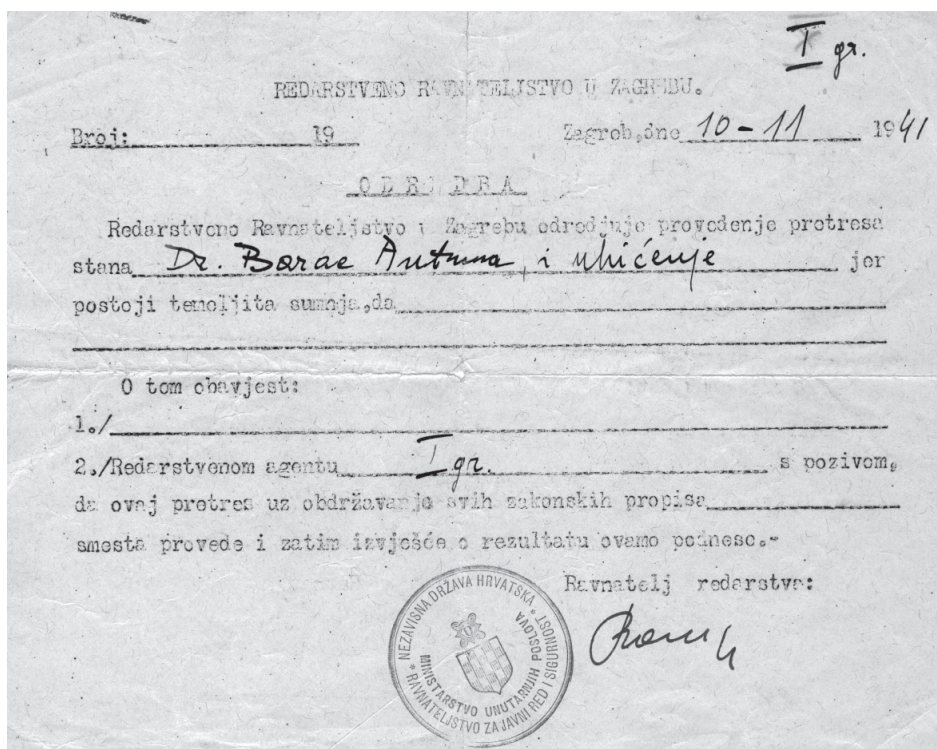 I gr.
REDARSTVENO RAVNATELJSTVO U ZAGREBU.
Broj: 19 Zagreb,dne 10-11 1941
ODREDBA
Redarstveno Ravnateljstvo u Zagrebu odredjuje provedenje pretresa
stana Dr. Barac Antuna, i uhićenje jer
postoji temeljita sumnja,da
O tom obavjest:
1./
2./Redarstvenom agentu I gr. s pozivom,
da ovaj pretres uz obdržavanje svih zakonskih propisa
smesta provede i zatim izvješće o rezultatu ovamo podnese.-
Ravnatelj redarstva:
NEZAVISNA DRŽAVA HRVATSKA
MINISTARSTVO UNUTARNJIH POSLOVA
* RAVNATELJSTVO ZA JAVNI RED I SIGURNOST *